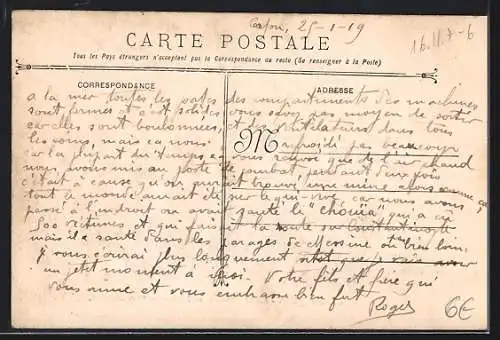 Corfou, 25-1-19
16.11.7-6
CARTE POSTALE
Tous les Pays étrangers n'acceptent pas la Correspondance au recto (Se renseigner à la Poste)
CORRESPONDANCE
ADRESSE
M
a la mer toutes les portes des compartiments des machines
sont fermés et c'est solides vous savez pas moyen de sortir
car elles sont boulonnées, et des ventilateurs dans tous
les coins, mais ça nous refroidi pas beaucoup
car la plupart du temps ne vous envoie que de l'air chaud
nous avons mis au poste de combat, pendant deux fois
c'était à cause qu'on aurait trouvé une mine alors comme ça
tout le monde aurait été sur le qui-vive, car nous avons
passé à l'endroit ou avait sauté le "chaouia", qui a eu
500 victimes et qui faisait la route de Constantinople
mais il a sauté dans les parages de Messine et bien loin.
Je vous écrirai plus longuement
un petit moment à moi. Votre fils et frère qui
vous aime et vous embrasse bien fort
Roger
6€